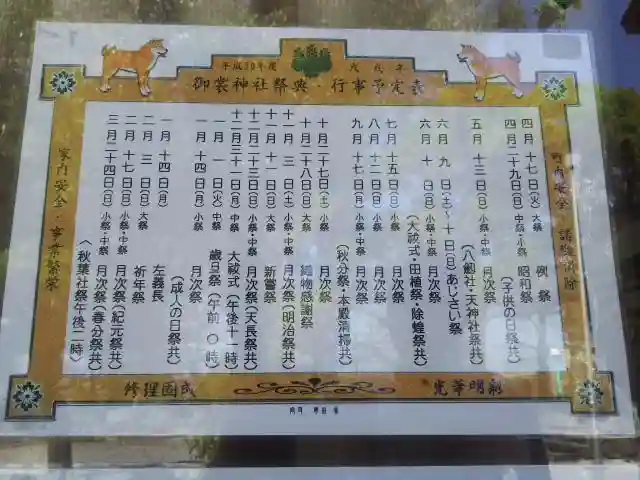 平成30年度 戊戌年
御裳神社祭典・行事予定表
四月 十七日(火)大祭 例祭
四月二十九日(日)中祭・小祭 昭和祭
(子供の日祭共)
五月 十三日(日)小祭・中祭 月次祭
(八劔社・天神社祭共)
六月 九日(土)～十日(日)あじさい祭
六月 十日(日)小祭・中祭 月次祭
(大祓式・田植祭・除蝗祭共)
七月 十五日(日)小祭 月次祭
八月 十二日(日)小祭 月次祭
九月 十七日(月)小祭・中祭 月次祭
(秋分祭・本殿清掃共)
十月 二十七日(土)小祭 月次祭
十月 二十八日(日)大祭 織物感謝祭
十一月 三日(土)小祭・中祭 月次祭(明治祭共)
十一月 十一日(日)大祭 新嘗祭
十二月二十三日(日)小祭・中祭 月次祭(天長祭共)
十二月三十一日(月)中祭 大祓式(午後十一時)
一月 一日(火)中祭 歳旦祭(午前〇時)
一月 十四日(月)小祭 月次祭
(成人の日祭共)
一月 十四日(月) 左義長
二月 三日(日)大祭 祈年祭
二月 十七日(日)小祭・中祭 月次祭(紀元祭共)
三月二十四日(日)小祭・中祭 月次祭(春分祭共)
(秋葉社祭午後二時)
家内安全・事業繁栄
修理固成
光華明彩